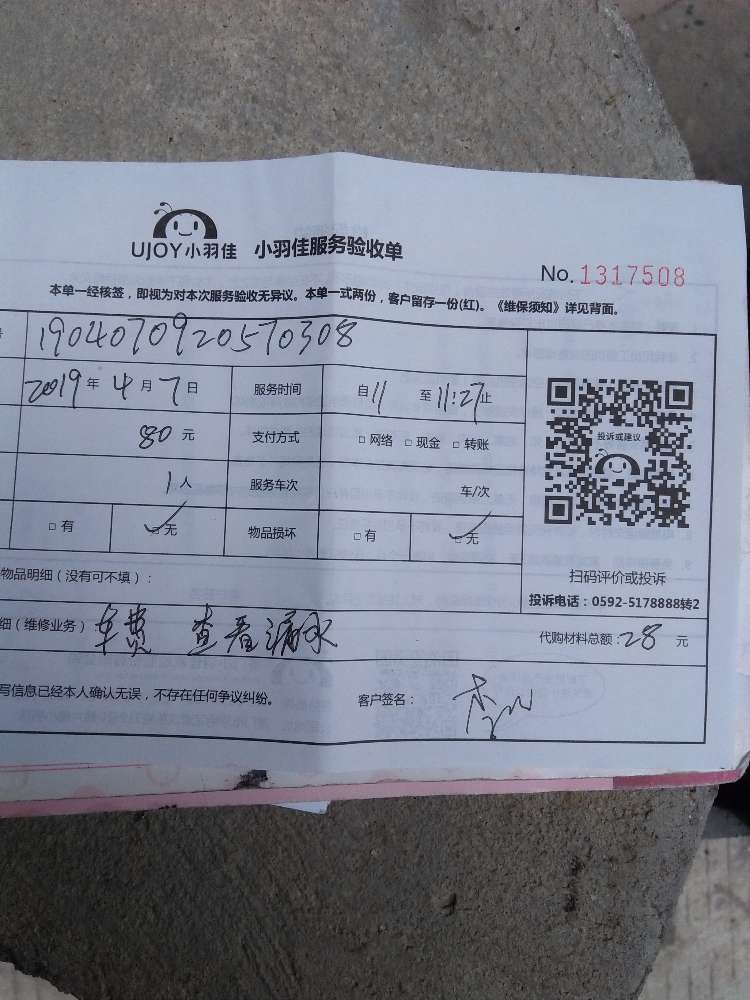 UJOY小羽佳 小羽佳服务验收单
No. 1317508
本单一经核签，即视为对本次服务验收无异议。本单一式两份，客户留存一份(红)。《维保须知》详见背面。
号 1904070920570308
2019年4月7日 服务时间 自11至11:27止
80元 支付方式 □网络 □现金 □转账
1人 服务车次 车/次
□有 □无 物品损坏 □有 □无
投诉或建议
扫码评价或投诉
投诉电话：0592-5178888转2
物品明细（没有可不填）：
细（维修业务）：车费 查看漏水 代购材料总额：28元
写信息已经本人确认无误，不存在任何争议纠纷。 客户签名：